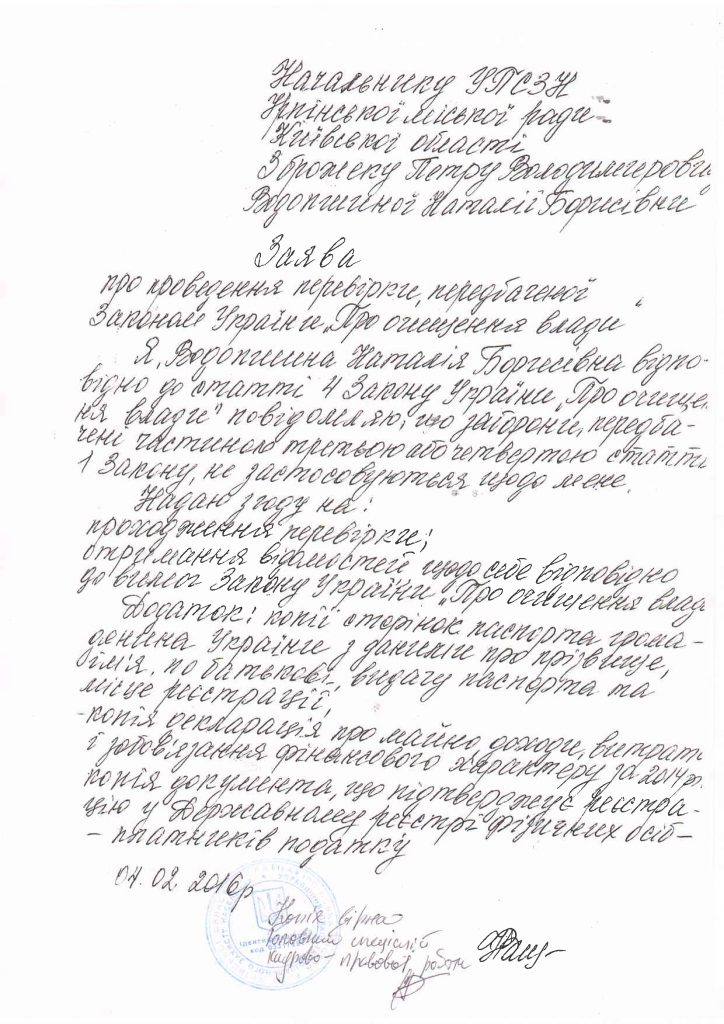 Начальнику УПСЗН
Ірпінської міської ради
Київської області
Зброжеку Петру Володимирови
Водопшиної Наталії Борисівни
Заява
про проведення перевірки, передбаченої
Законом України „Про очищення влади"
Я, Водопшина Наталія Борисівна відпо-
відно до статті 4 Закону України „Про очище
ня влади" повідомляю, що заборони, передба-
чені частиною третьою або четвертою статті
1 Закону, не застосовуються щодо мене.
Надаю згоду на:
проходження перевірки;
отримання відомостей щодо себе відповідно
до вимог Закону України „Про очищення влад
Додаток: копії сторінок паспорта грома-
дянина України з даними про прізвище,
ім'я, по батькові, видачу паспорта та
місце реєстрації,
-копія декларація про майно, доходи, витрати
і зобов'язання фінансового характеру за 2014 р.
копія документа, що підтверджує реєстра-
цію у Державному реєстрі фізичних осіб-
- платників податку
04.02.2016р
Копія вірна
головний спеціаліст
кадрово-правової роботи